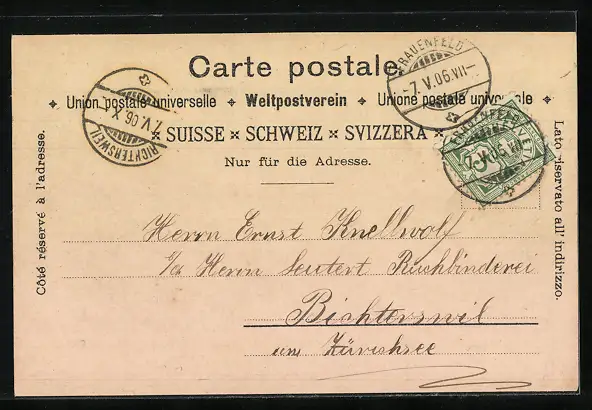 Carte postale.
Union postale universelle ✦ Weltpostverein ✦ Unione postale universale
SUISSE × SCHWEIZ × SVIZZERA
Nur für die Adresse.
Côté réservé à l'adresse.
Lato riservato all' indirizzo.
FRAUENFELD
-7.V.06.VII-
FRAUENFELD
-7.V.06.VII-
RICHTERSWEIL
7.V.06.X
Herrn Ernst Knellwolf
Herrn Seutert Buchbinderei
Richterswil
am Zürichsee